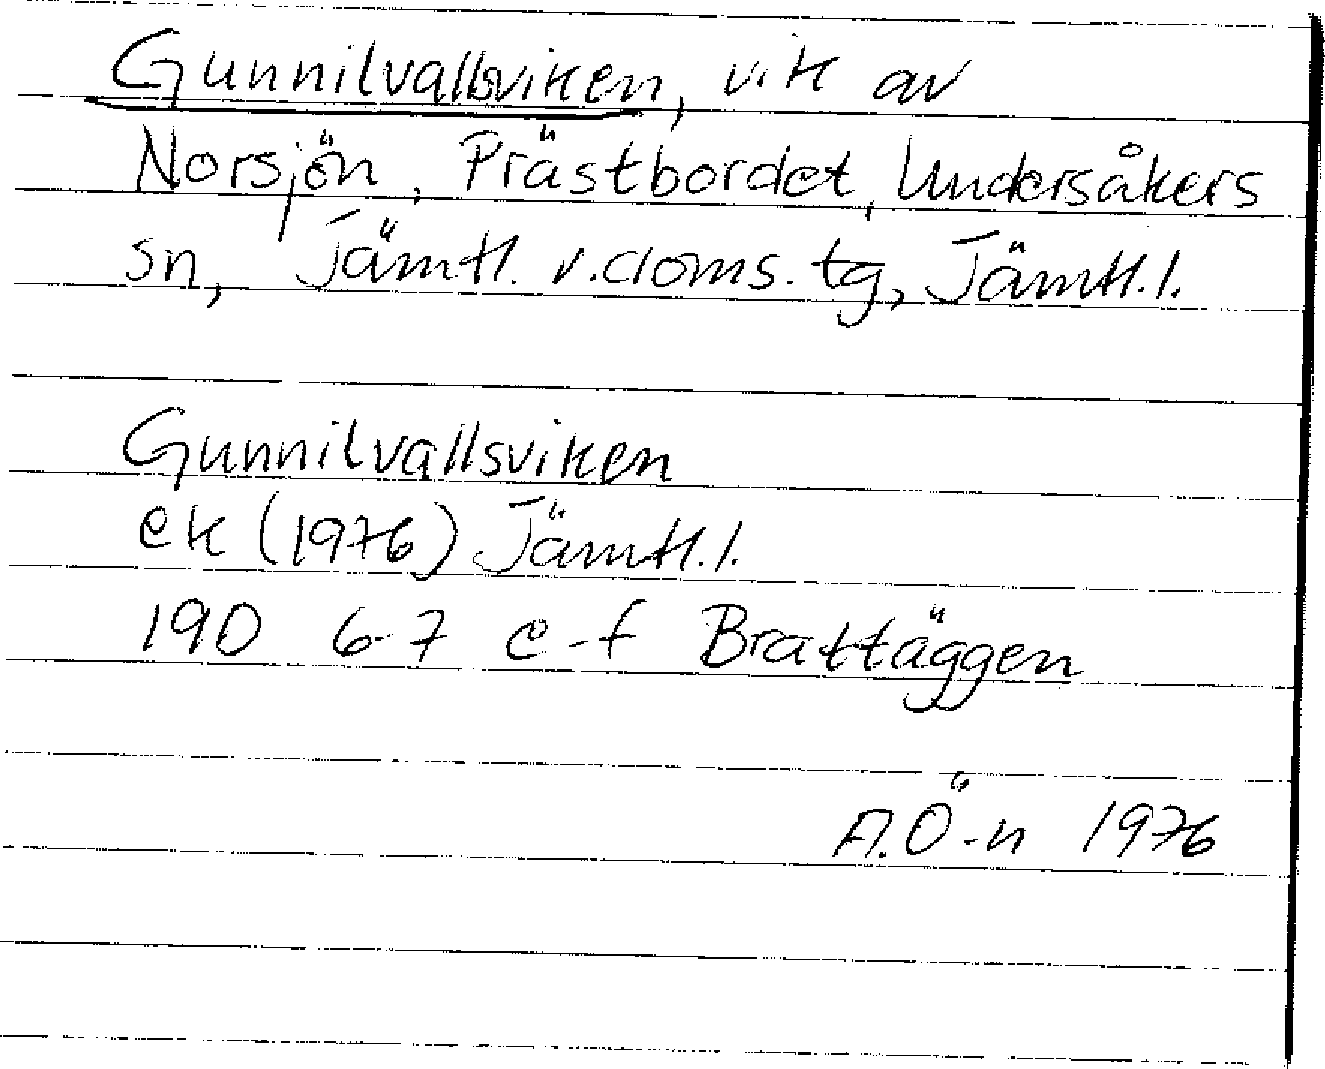 Gunnilvallsviken, vik av
Norsjön, Prästbordet, Undersåkers
sn, Jämtl. v. doms. tg, Jämtl. l.
Gunnilvallsviken
ek (1976) Jämtl. l.
19D 6-7 e-f Brattäggen
A. Ö-n 1976